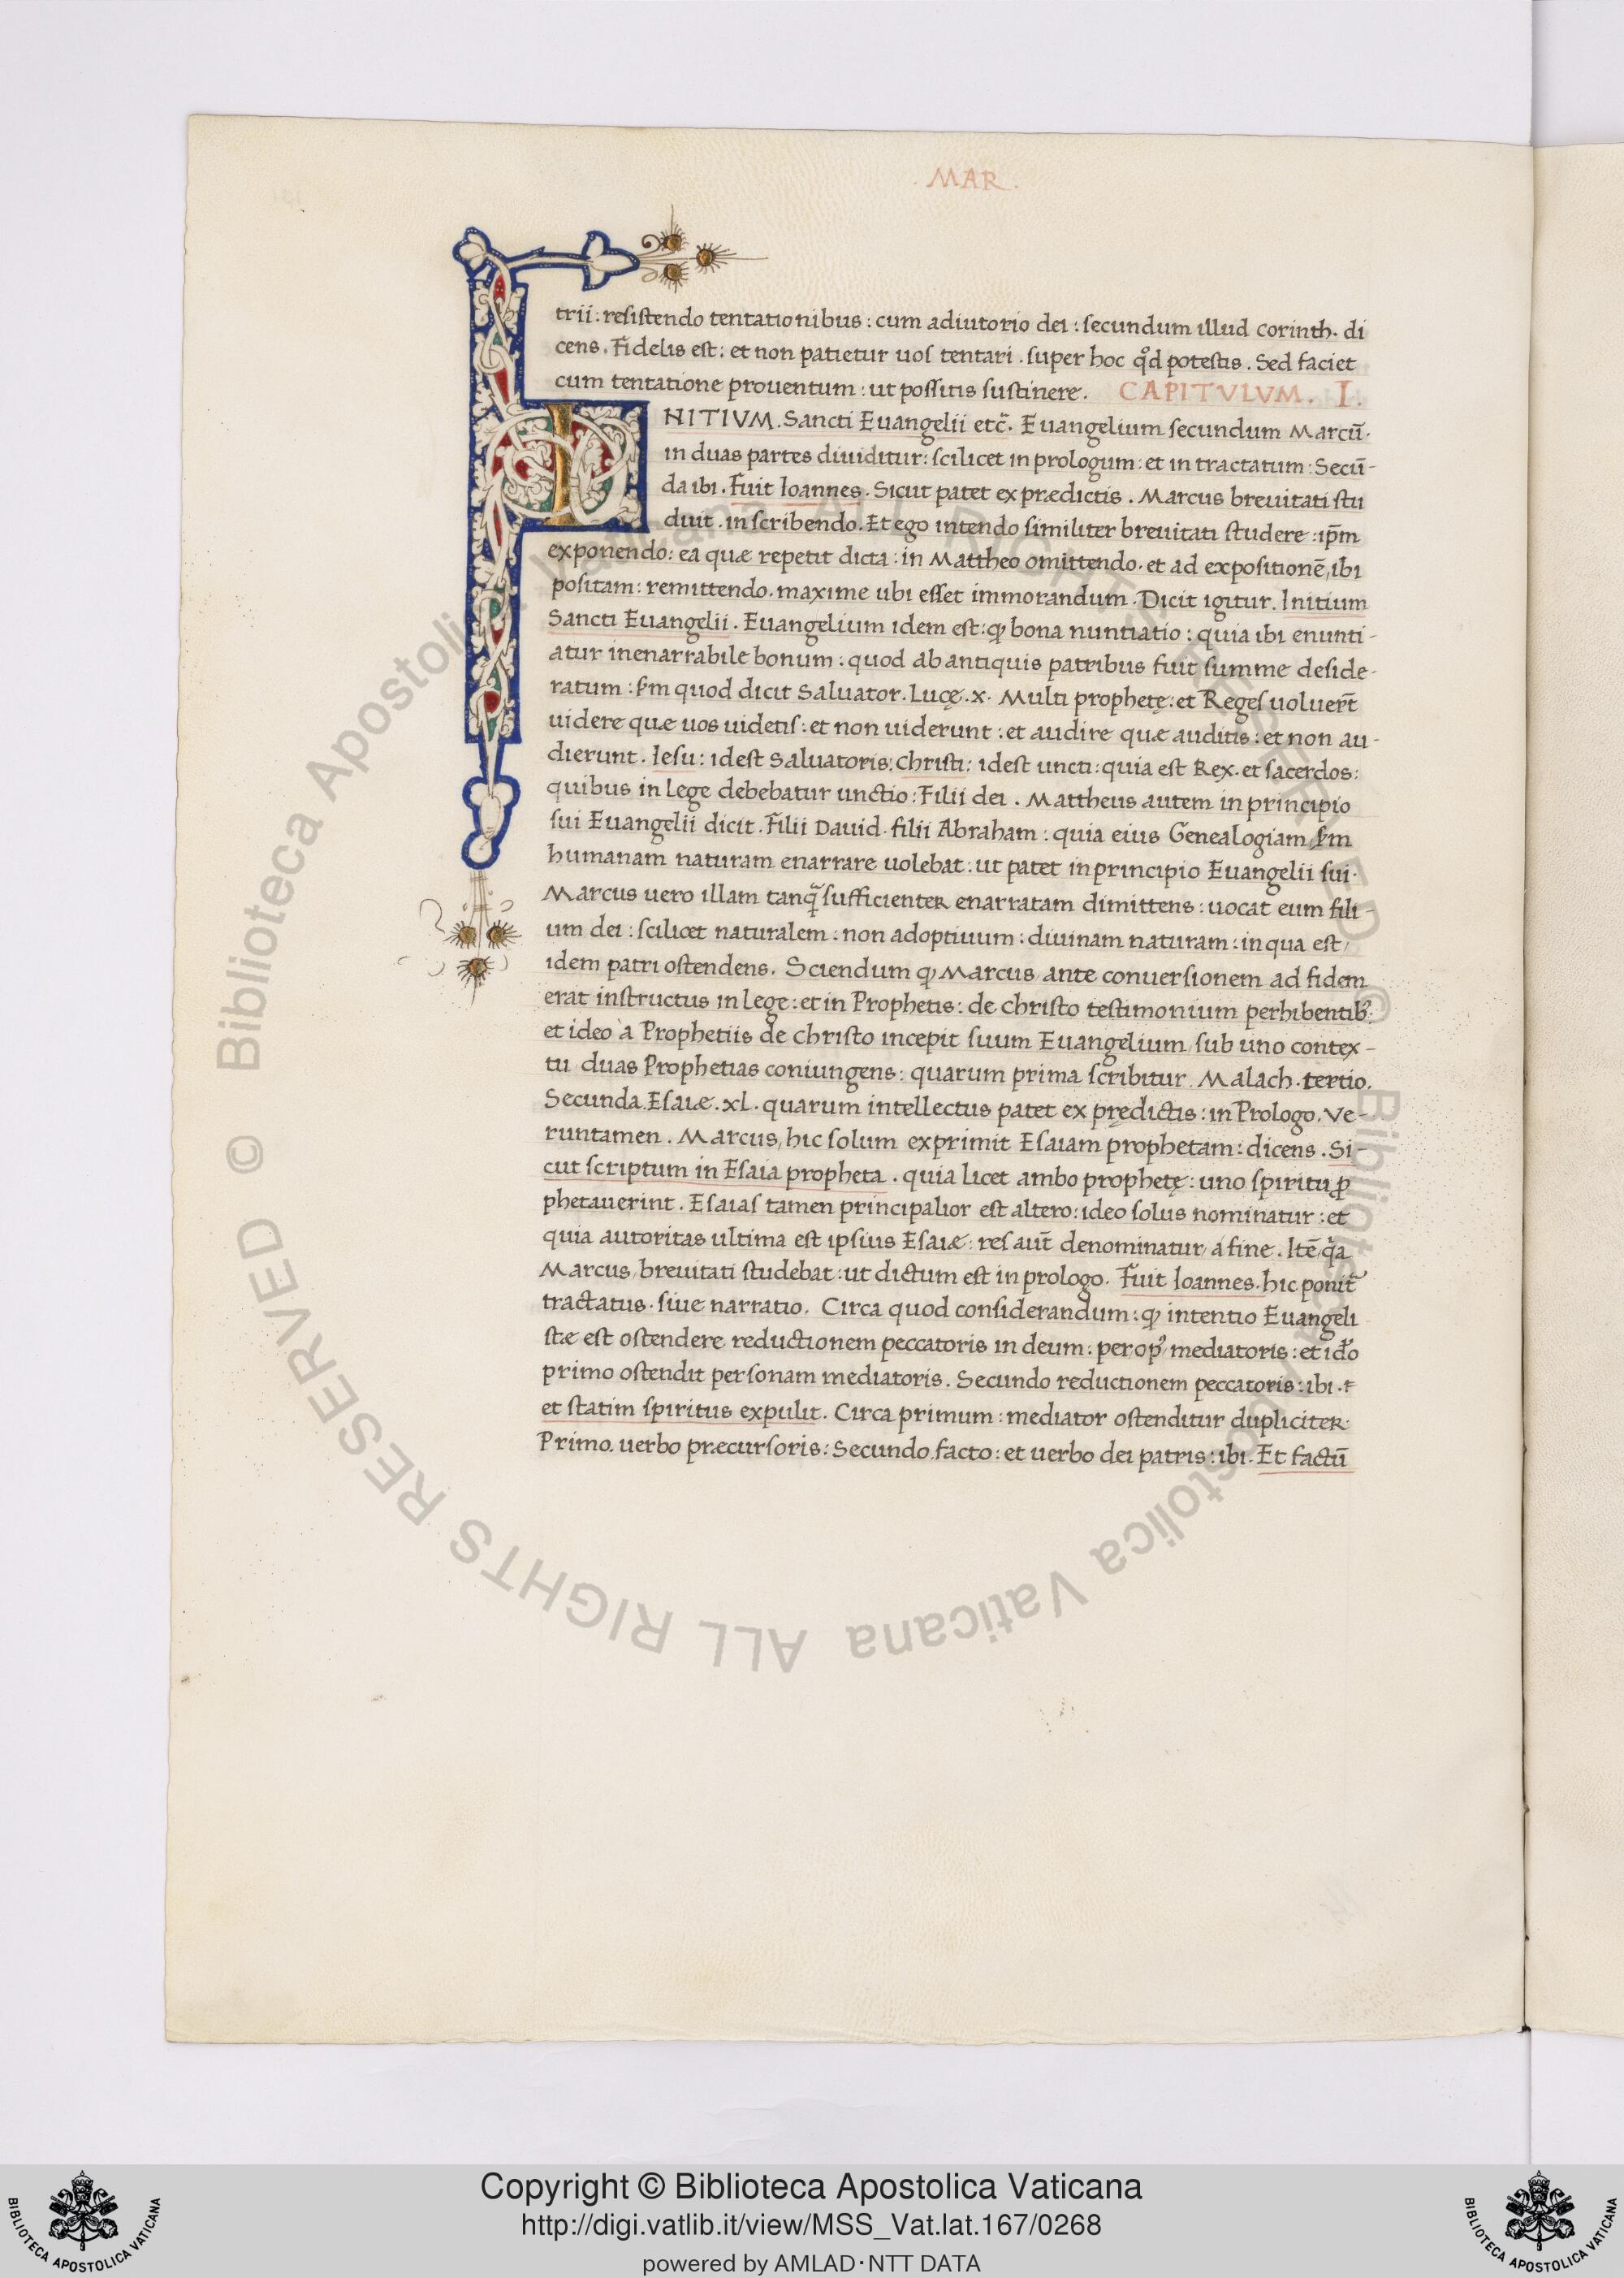 . MAR .
trii : resistendo tentationibus : cum adiutorio dei : secundum illud corinth. di
cens . Fidelis est : et non patietur uos tentari . super hoc qd̕ potestis . Sed faciet
cum tentatione prouentum : ut possitis sustinere . CAPITVLVM . I .
INITIVM . Sancti Euangelii etc̄. Euangelium secundum Marcū.
in duas partes diuiditur : scilicet in prologum : et in tractatum : Secū-
da ibi . Fuit Ioannes . Sicut patet ex prædictis . Marcus breuitati stu
duit . in scribendo . Et ego intendo similiter breuitati studere : ip̄m
exponendo : ea quæ repetit dicta : in Mattheo omittendo . et ad expositionē, ibi
positam : remittendo . maxime ubi esset immorandum . Dicit igitur . Initium
Sancti Euangelii . Euangelium idem est : ꝙ bona nuntiatio : quia ibi enunti-
atur inenarrabile bonum : quod ab antiquis patribus fuit summe deside-
ratum : s̄m quod dicit Saluator . Lucę . x . Multi prophetę : et Reges uoluer̄t
uidere quæ uos uidetis : et non uiderunt : et audire quæ auditis : et non au-
dierunt . Iesu : idest Saluatoris : Christi : idest uncti : quia est Rex . et sacerdos :
quibus in lege debebatur unctio : Filii dei . Mattheus autem in principio
sui Euangelii dicit . Filii David . filii Abraham : quia eius Genealogiam s̄m
humanam naturam enarrare uolebat : ut patet in principio Euangelii sui .
Marcus uero illam tanq̄ sufficienter enarratam dimittens : uocat eum fili-
um dei : scilicet naturalem : non adoptiuum : diuinam naturam : in qua est,
idem patri ostendens . Sciendum ꝙ Marcus ante conuersionem ad fidem
erat instructus in lege : et in Prophetis : de christo testimonium perhibentib; :
et ideo à Prophetiis de christo incepit suum Euangelium, sub uno contex-
tu duas Prophetias coniungens : quarum prima scribitur Malach . tertio .
Secunda Esaiæ . xl . quarum intellectus patet ex prędictis : in Prologo . Ve-
runtamen . Marcus, hic solum exprimit Esaiam prophetam : dicens . Si-
cut scriptum in Esaia propheta . quia licet ambo prophetę : uno spiritu ꝓ
phetauerint . Esaias tamen principalior est altero : ideo solus nominatur : et
quia autoritas ultima est ipsius Esaiæ : res aut̄ denominatur, a fine . Itē qa
Marcus, breuitati studebat : ut dictum est in prologo . Fuit Ioannes . hic ponit̃
tractatus . siue narratio . Circa quod considerandum : ꝙ intentio Euangeli
stæ est ostendere reductionem peccatoris in deum : per op; mediatoris : et ido̕
primo ostendit personam mediatoris . Secundo reductionem peccatoris : ibi .
et statim spiritus expulit . Circa primum : mediator ostenditur dupliciter .
Primo . uerbo præcursoris : Secundo . facto : et uerbo dei patris : ibi . Et factū
© Biblioteca Apostolica Vaticana ALL RIGHTS RESERVED © Biblioteca Apostolica Vaticana ALL RIGHTS RESERVED
Copyright © Biblioteca Apostolica Vaticana
http://digi.vatlib.it/view/MSS_Vat.lat.167/0268
powered by AMLAD･NTT DATA
BIBLIOTECA APOSTOLICA VATICANA
BIBLIOTECA APOSTOLICA VATICANA